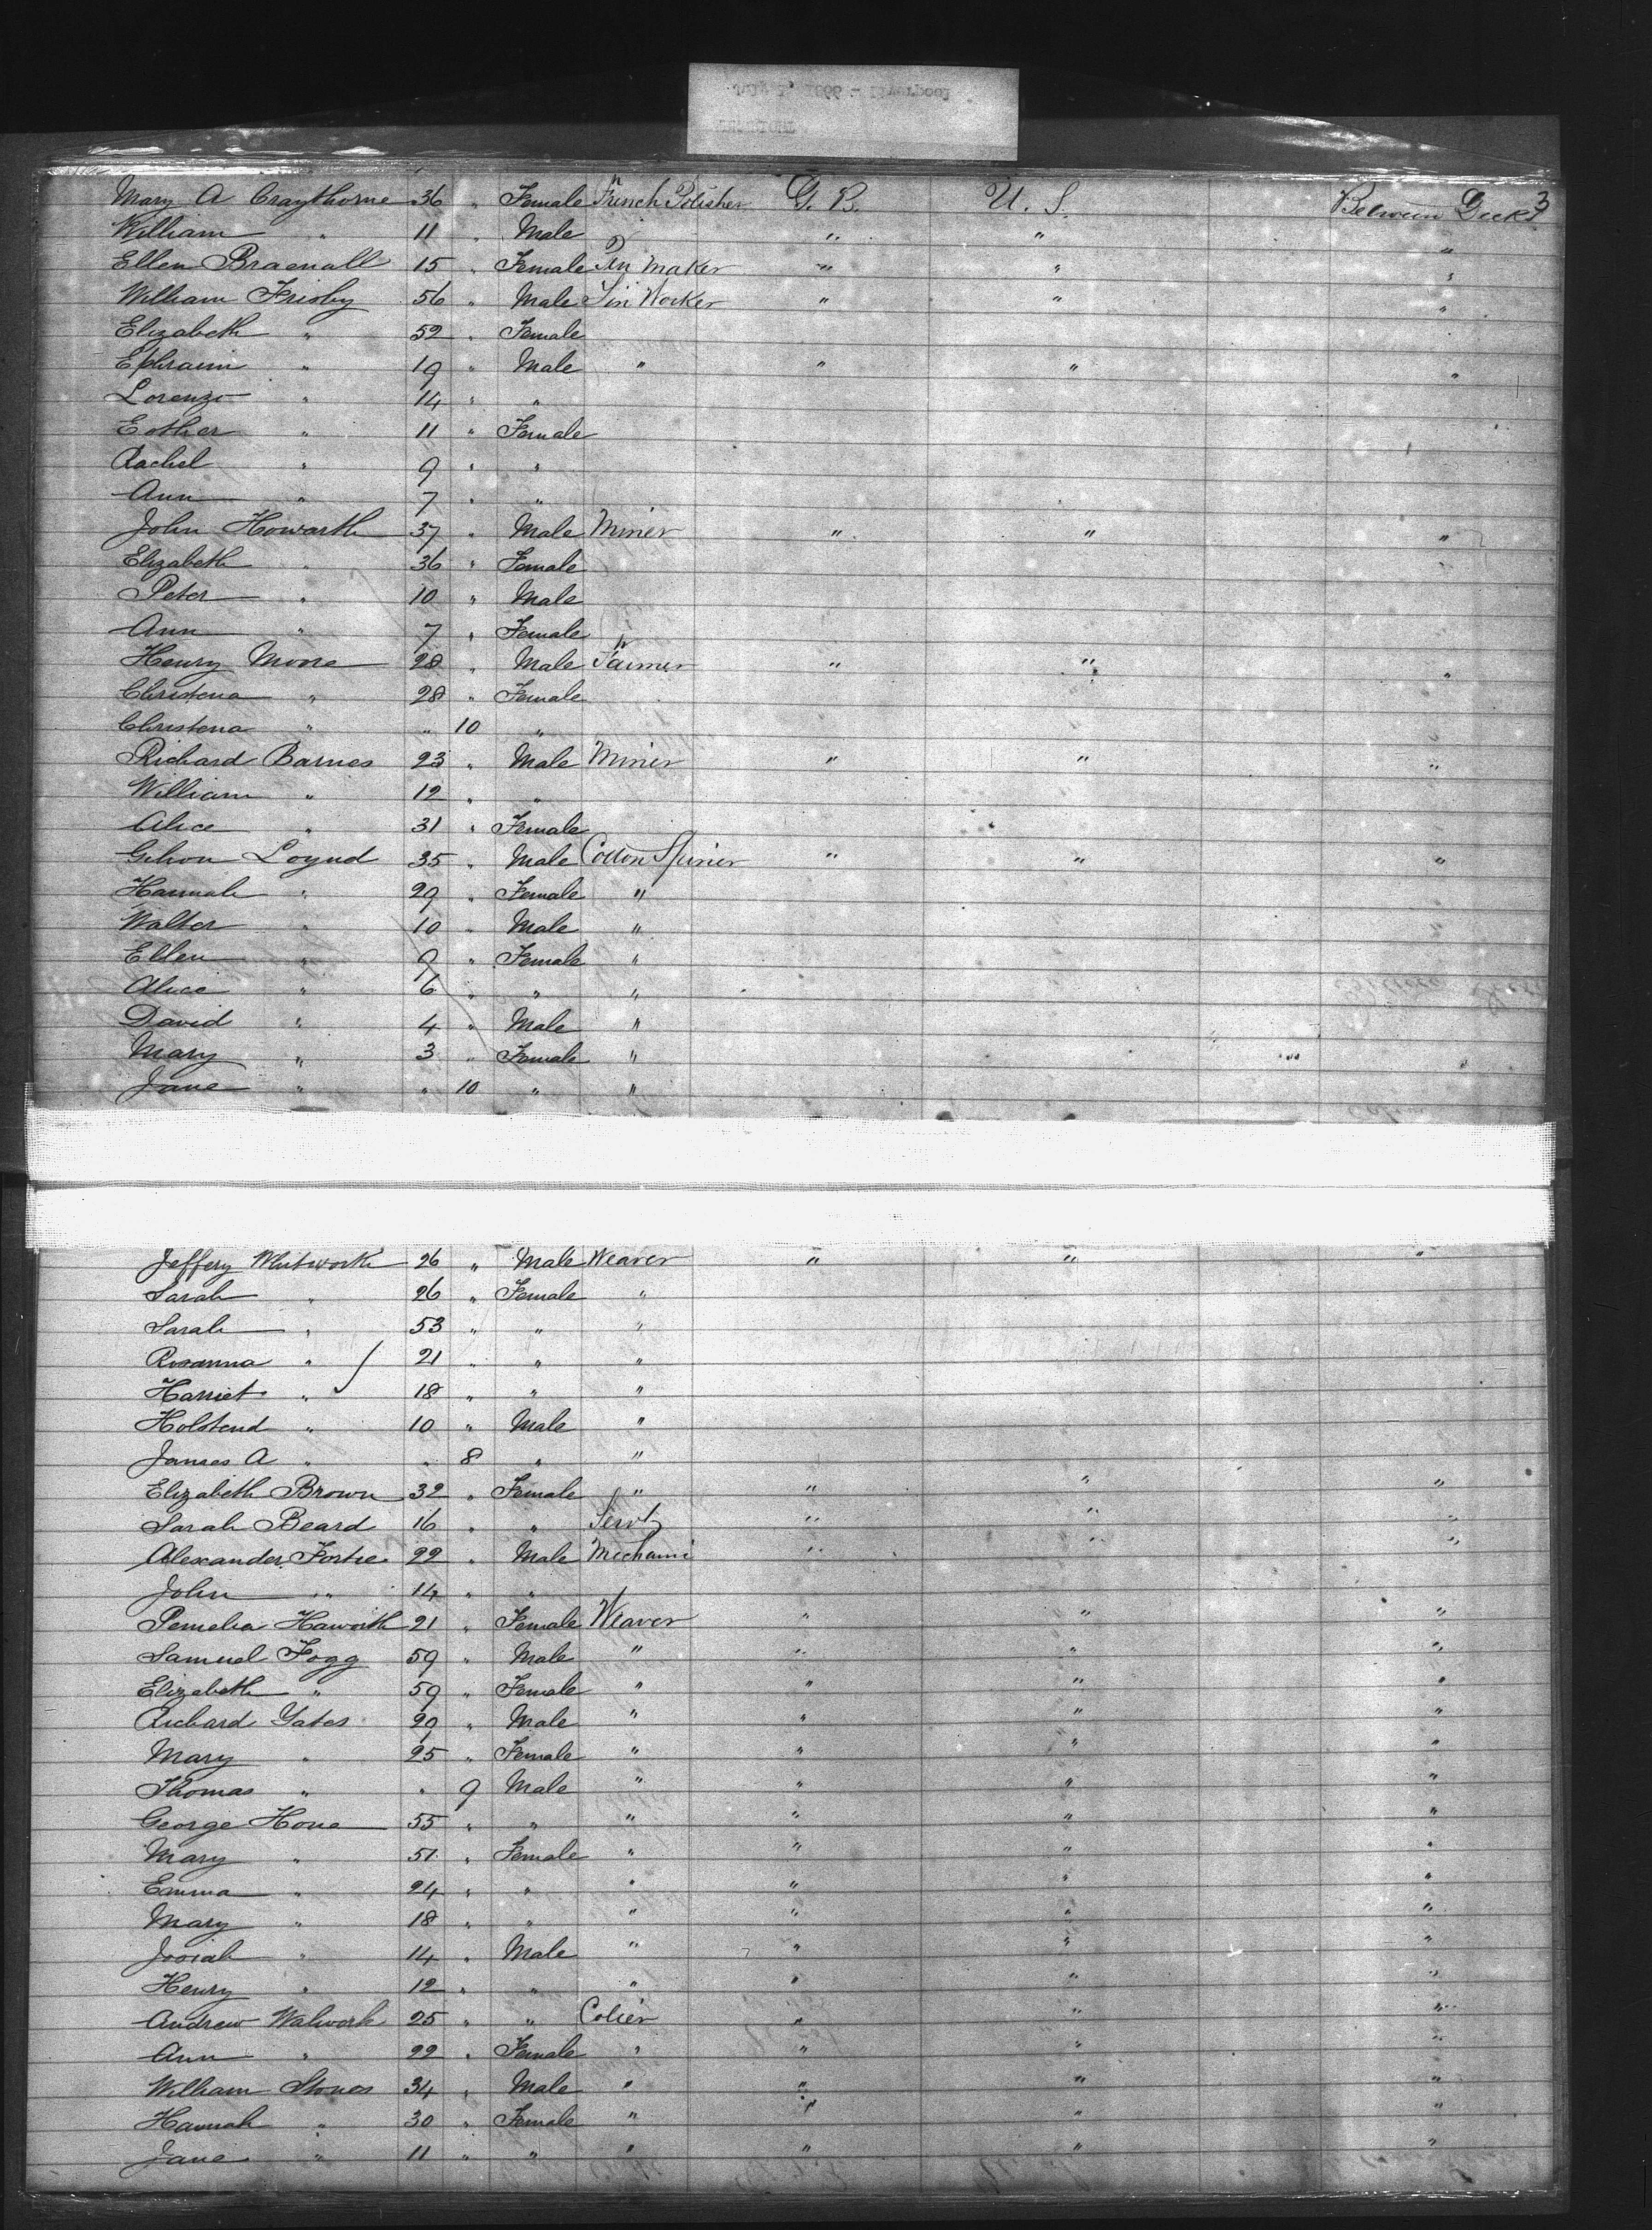 July 1, 1866 - Liverpool
Mary A Craythorne 36 " Female French Polisher G. B. U. S. Between Decks 3
William " 11 " Male " " "
Ellen Bracnall 15 " Female Pin Maker " " "
William Frisby 56 " Male Tin Worker " " "
Elizabeth " 52 " Female
Ephraim " 19 " Male " " " "
Lorenzo " 14 " "
Esther " 11 " Female
Rachel " 9 " "
Ann " 7 " "
John Howarth 37 " Male Miner " " "
Elizabeth " 36 " Female
Peter " 10 " Male
Ann " 7 " Female
Henry Moore 28 " Male Farmer " " "
Christena " 28 " Female
Christena " " 10 "
Richard Barnes 23 " Male Miner " " "
William " 12 " "
Alice " 31 " Female
Loynd 35 " Male Cotton Spiner " " "
Hannah " 29 " Female "
Walter " 10 " Male "
Ellen " 9 " Female "
Alice " 6 " " "
David " 4 " Male "
Mary " 3 " Female "
Jane " " 10 " "
Jeffery Whitworth 26 " Male Weaver " " "
Sarah " 26 " Female "
Sarah " 53 " " "
Rosanna " 21 " " "
Harriet " 18 " " "
Holstend " 10 " Male "
James A " " 8 " "
Elizabeth Brown 32 " Female " " " "
Sarah Beard 16 " " Servt " " "
Alexander Fortie 22 " Male Mechanic " " "
John " 14 " "
Pemelia Haworth 21 " Female Weaver " " "
Samuel Fogg 59 " Male " " " "
Elizabeth " 59 " Female " " " "
Richard Yates 29 " Male " " " "
Mary " 25 " Female " " " "
Thomas " " 9 Male " " " "
George Hone 55 " " " " " "
Mary " 51 " Female " " " "
Emma " 24 " " " " " "
Mary " 18 " " " " " "
Josiah " 14 " Male " " " "
Henry " 12 " " " " " "
Andrew Walwork 25 " " Colier " " "
Ann " 22 " Female " " " "
William Stones 34 " Male " " " "
Hannah " 30 " Female " " " "
Jane " 11 " " " " " "